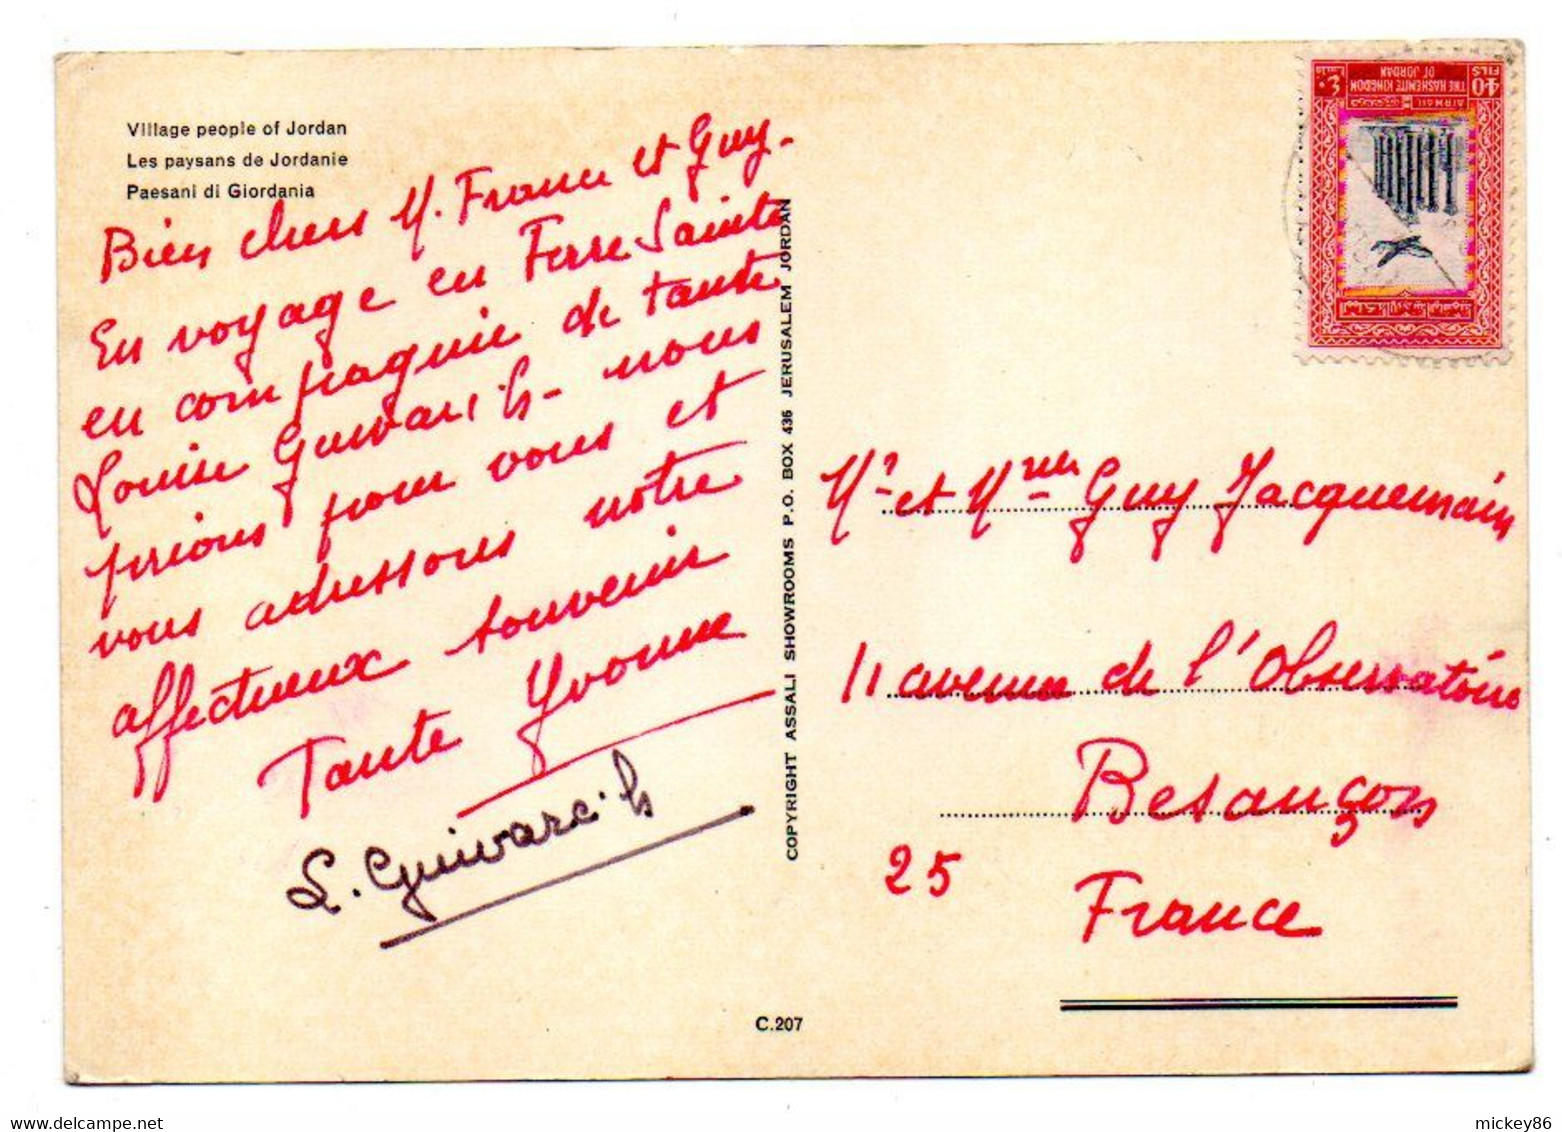 Village people of Jordan
Les paysans de Jordanie
Paesani di Giordania
Bien chers M. France et Guy-
En voyage en Terre Sainte
en compagnie de tante
Louise Guivarc'h - nous
prions pour vous et
vous adressons notre
affectueux souvenir
Tante Yvonne
L. Guivarc'h
COPYRIGHT ASSALI SHOWROOMS P.O. BOX 436 JERUSALEM JORDAN
C.207
40
FILS
THE HASHEMITE KINGDOM
OF JORDAN
AIRMAIL
Mr et Mme Guy Jacquemain
11 avenue de l'Observatoire
Besançon
25
France
mickey86